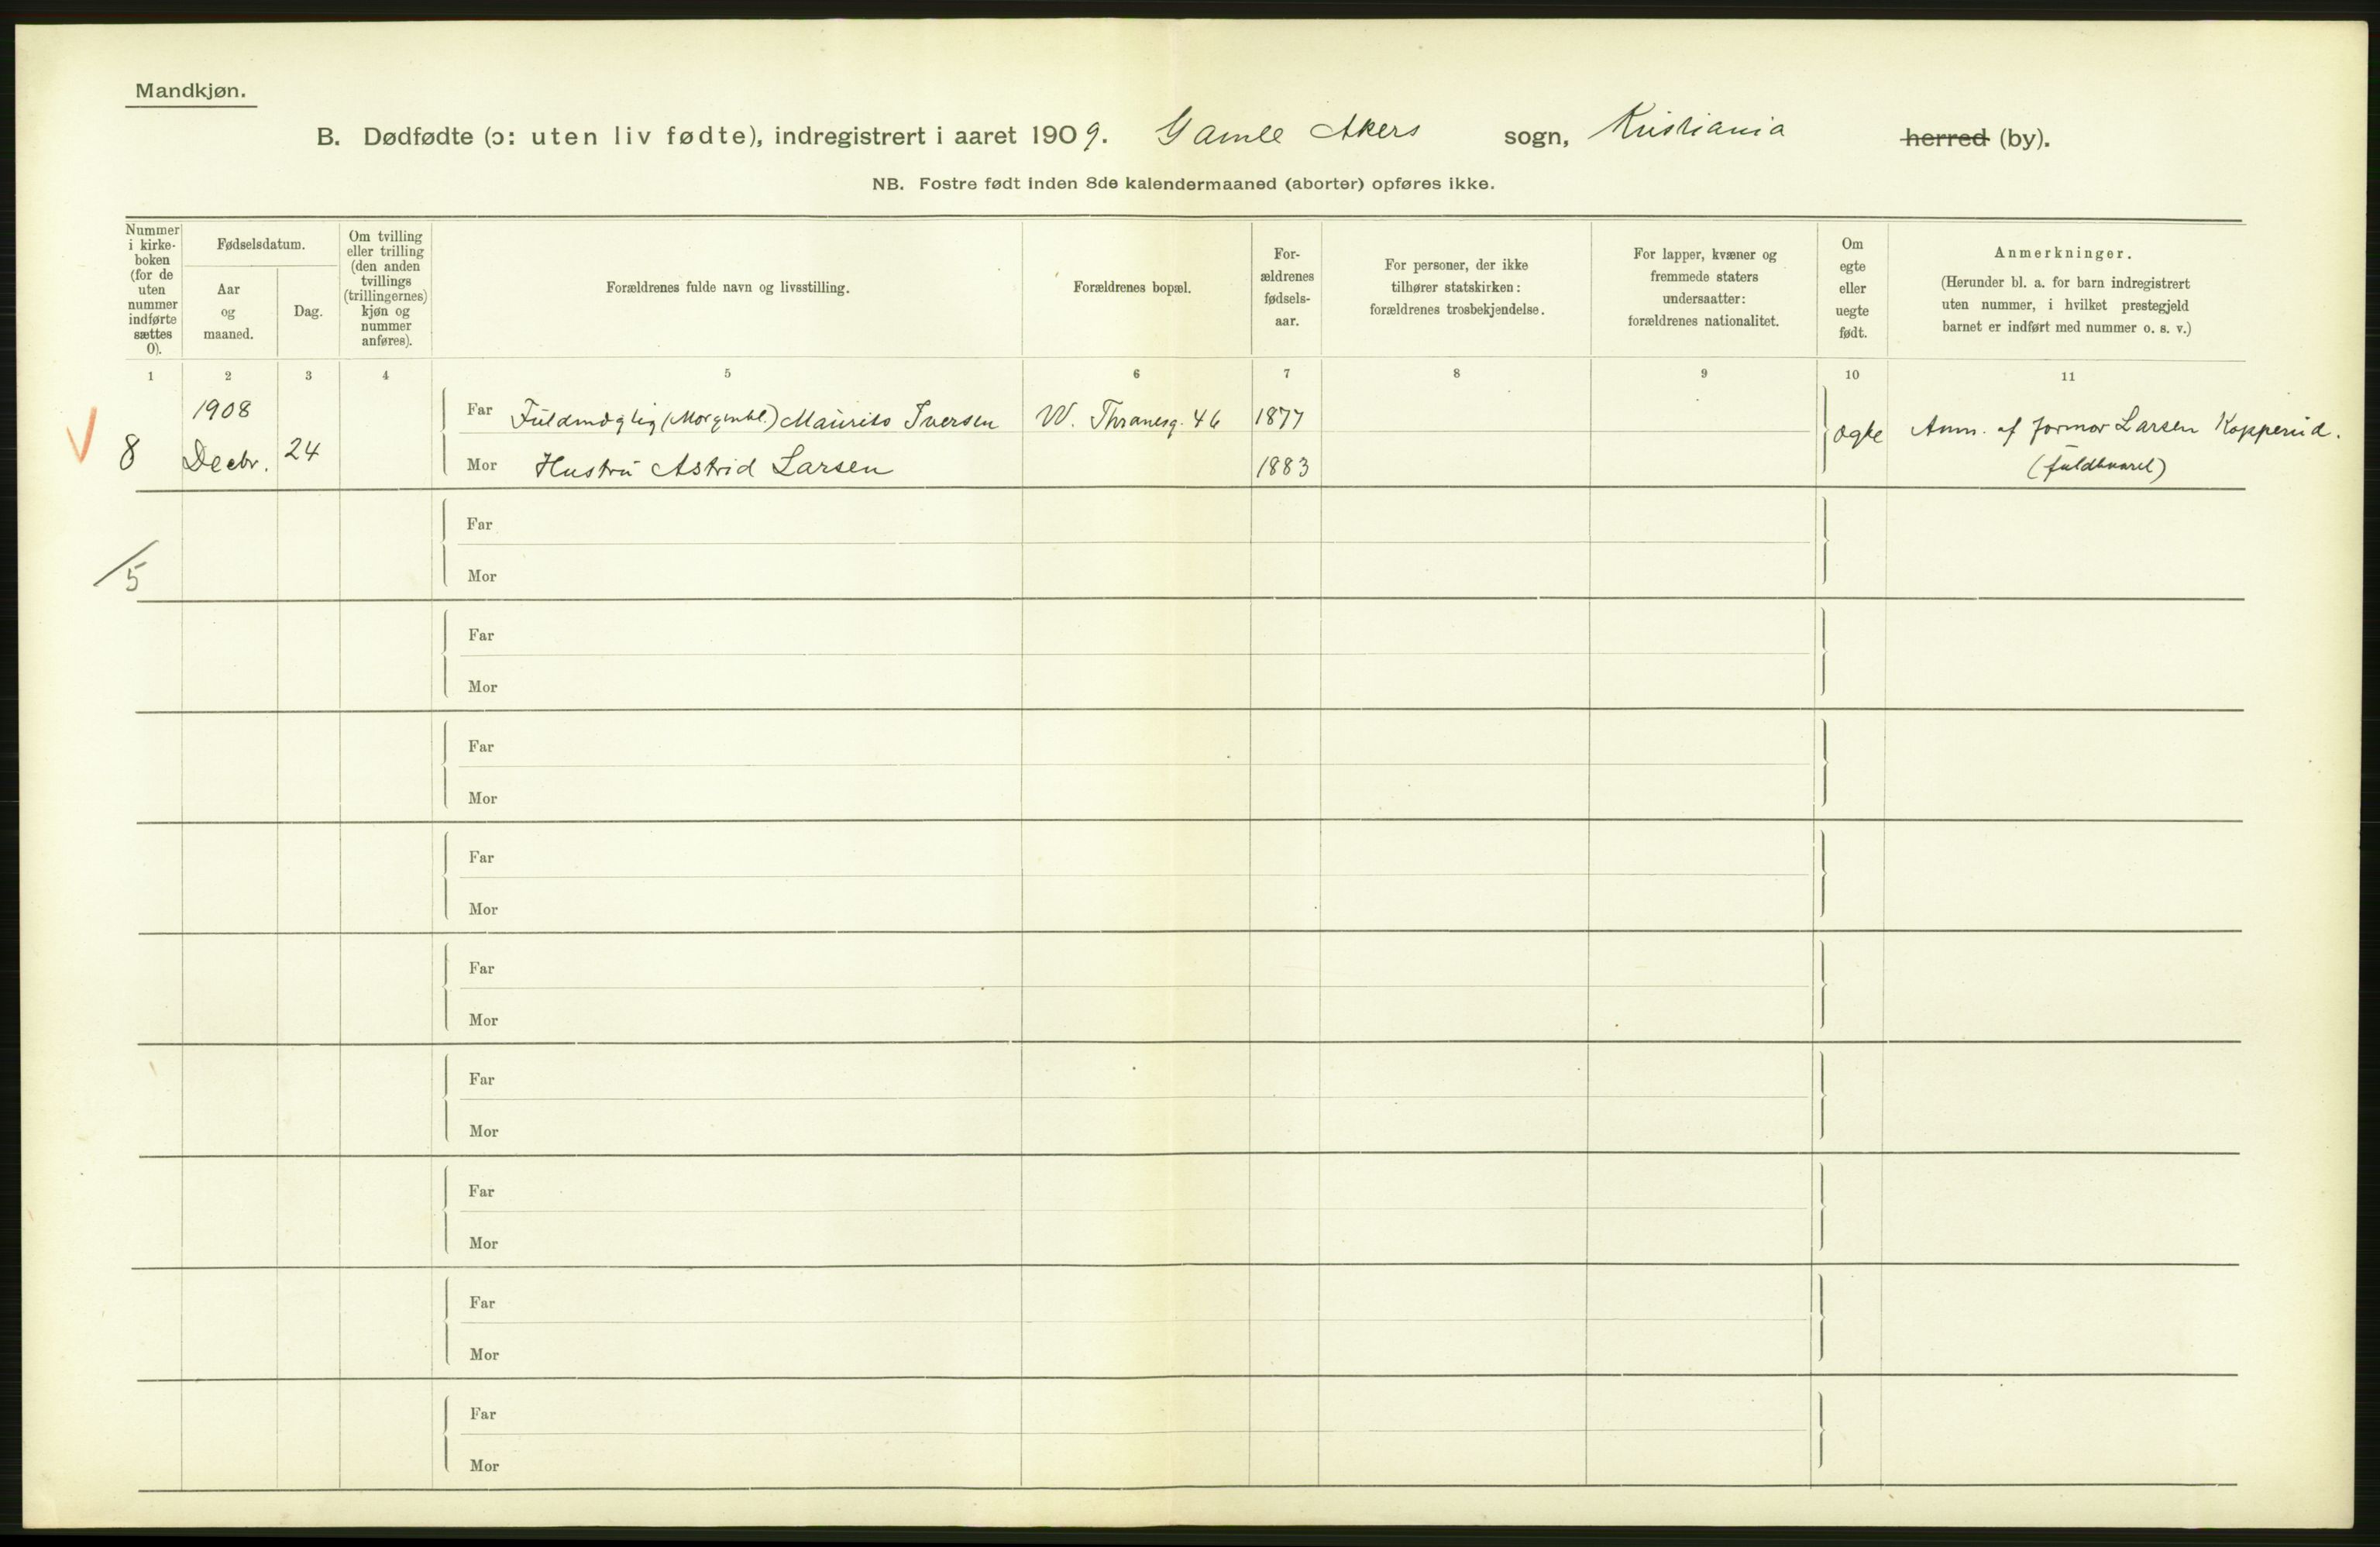 Mandkjøn.
B. Dødfødte (ɔ: uten liv fødte), indregistrert i aaret 1909. Gamle Akers sogn, Kristiania herred (by).
NB. Fostre født inden 8de kalendermaaned (aborter) opføres ikke.
Nummer i kirke-boken (for de uten nummer indførte sættes 0).
Fødselsdatum.
Aar og maaned.
Dag.
Om tvilling eller trilling (den anden tvillings (trillingernes) kjøn og nummer anføres).
Forældrenes fulde navn og livsstilling.
Forældrenes bopæl.
For-ældrenes fødsels-aar.
For personer, der ikke tilhører statskirken: forældrenes trosbekjendelse.
For lapper, kvæner og fremmede staters undersaatter: forældrenes nationalitet.
Om egte eller uegte født.
Anmerkninger.
(Herunder bl. a. for barn indregistrert uten nummer, i hvilket prestegjeld barnet er indført med nummer o. s. v.)
1 2 3 4 5 6 7 8 9 10 11
1908
Far Fuldmægtig (Morgenbl.) Maurits Iversen W. Thranesg. 46 1877
8 Decbr. 24 ægte Anm. af jormor Larsen Kopperud.
Mor Hustru Astrid Larsen 1883 (fuldbaaret)
Far
5
Mor
Far
Mor
Far
Mor
Far
Mor
Far
Mor
Far
Mor
Far
Mor
Far
Mor
Far
Mor